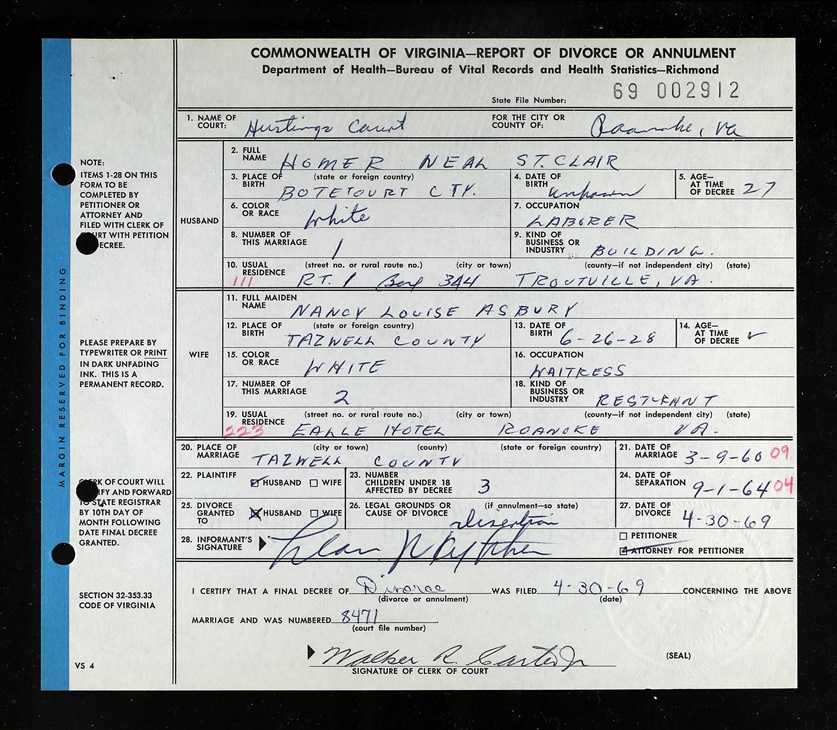 COMMONWEALTH OF VIRGINIA—REPORT OF DIVORCE OR ANNULMENT
Department of Health—Bureau of Vital Records and Health Statistics—Richmond
State File Number: 69 002912
1. NAME OF COURT: Hustings Court FOR THE CITY OR COUNTY OF: Roanoke, Va
NOTE:
ITEMS 1-28 ON THIS
FORM TO BE
COMPLETED BY
PETITIONER OR
ATTORNEY AND
FILED WITH CLERK OF
COURT WITH PETITION
DECREE.
HUSBAND
2. FULL NAME HOMER NEAL ST. CLAIR
3. PLACE OF BIRTH (state or foreign country) BOTETOURT CTY. 4. DATE OF BIRTH unknown 5. AGE—AT TIME OF DECREE 27
6. COLOR OR RACE White 7. OCCUPATION LABORER
8. NUMBER OF THIS MARRIAGE 1 9. KIND OF BUSINESS OR INDUSTRY BUILDING.
10. USUAL RESIDENCE (street no. or rural route no.) (city or town) (county—if not independent city) (state)
111 RT. 1 Box 344 TROUTVILLE, VA.
MARGIN RESERVED FOR BINDING
PLEASE PREPARE BY
TYPEWRITER OR PRINT
IN DARK UNFADING
INK. THIS IS A
PERMANENT RECORD.
WIFE
11. FULL MAIDEN NAME NANCY LOUISE ASBURY
12. PLACE OF BIRTH (state or foreign country) TAZWELL COUNTY 13. DATE OF BIRTH 6-26-28 14. AGE—AT TIME OF DECREE ✓
15. COLOR OR RACE WHITE 16. OCCUPATION WAITRESS
17. NUMBER OF THIS MARRIAGE 2 18. KIND OF BUSINESS OR INDUSTRY RESTURANT
19. USUAL RESIDENCE (street no. or rural route no.) (city or town) (county—if not independent city) (state)
223 EARLE HOTEL ROANOKE VA.
20. PLACE OF MARRIAGE (city or town) (county) (state or foreign country) TAZWELL COUNTY 21. DATE OF MARRIAGE 3-9-60 09
22. PLAINTIFF ☒ HUSBAND ☐ WIFE 23. NUMBER CHILDREN UNDER 18 AFFECTED BY DECREE 3 24. DATE OF SEPARATION 9-1-64 04
25. DIVORCE GRANTED TO ☒ HUSBAND ☐ WIFE 26. LEGAL GROUNDS OR CAUSE OF DIVORCE (if annulment—so state) desertion 27. DATE OF DIVORCE 4-30-69
28. INFORMANT'S SIGNATURE ☐ PETITIONER
☒ ATTORNEY FOR PETITIONER
CLERK OF COURT WILL
AND FORWARD
TO STATE REGISTRAR
BY 10TH DAY OF
MONTH FOLLOWING
DATE FINAL DECREE
GRANTED.
SECTION 32-353.33
CODE OF VIRGINIA
I CERTIFY THAT A FINAL DECREE OF Divorce WAS FILED 4-30-69 CONCERNING THE ABOVE
(divorce or annulment) (date)
MARRIAGE AND WAS NUMBERED 8471
(court file number)
Walker R. Carter Jr
SIGNATURE OF CLERK OF COURT (SEAL)
VS 4